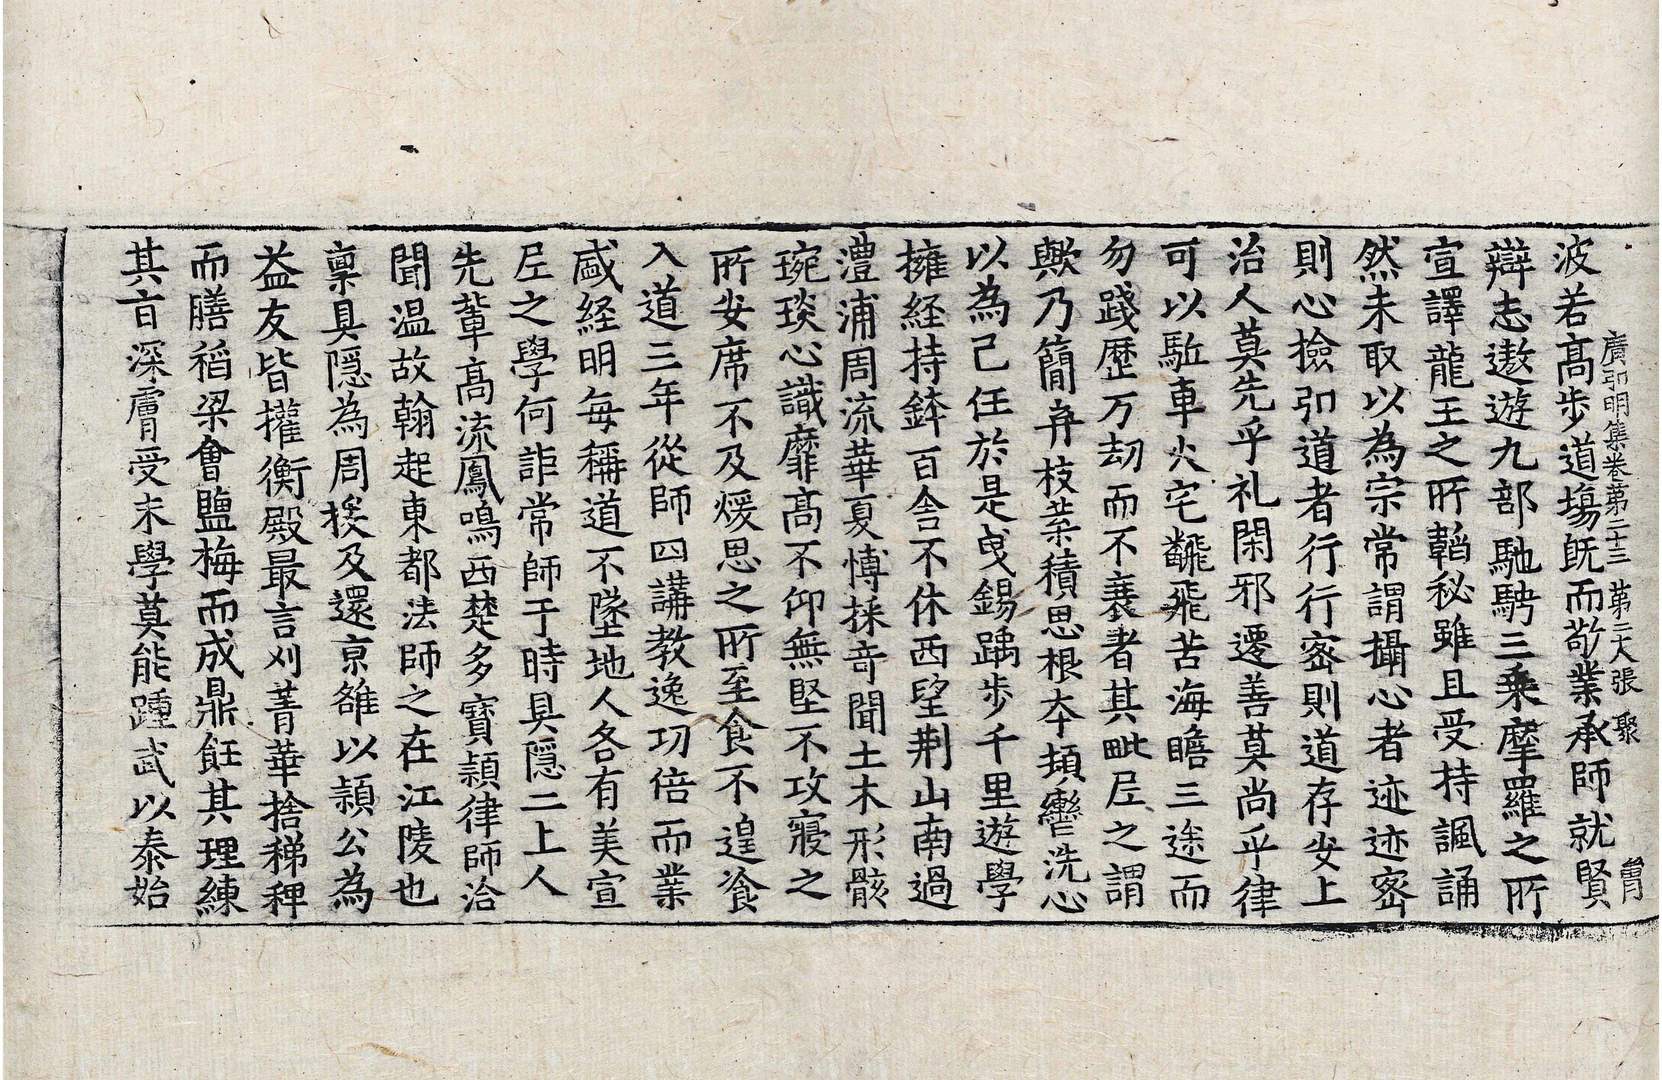 波若高步道場旣而敬業承師就賢
廣弘明集卷第二十三 第二大張 聚
辯志遨遊九部馳騁三乘摩羅之所
宣譯龍王之所韜秘雖且受持諷誦
然未取以為宗常謂攝心者迹迹密
則心撿弘道者行行密則道存安上
治人莫先乎礼閑邪遷善莫尚乎律
可以駈車火宅翻飛苦海瞻三途而
勿踐歷万劫而不衰者其毗尼之謂
歟乃簡弃枝葉積思根本頓轡洗心
以為己任於是曵錫踽步千里遊學
擁経持鉢百舍不休西望荆山南過
澧浦周流華夏博採奇聞土木形骸
琬琰心識靡高不仰無堅不攻寢之
所安席不及煖思之所至食不遑飡
入道三年從師四講教逸功倍而業
盛経明每稱道不墜地人各有美宣
尼之學何詎常師于時具隱二上人
先輩高流鳳鳴西楚多寶頴律師洽
聞温故翰起東都法師之在江陵也
稟具隱為周挨及還京雒以頴公為
益友皆權衡殿最言刈菁華捨稊稗
而膳稻梁會鹽梅而成鼎飪其理練
其旨深膚受末學莫能踵武以泰始